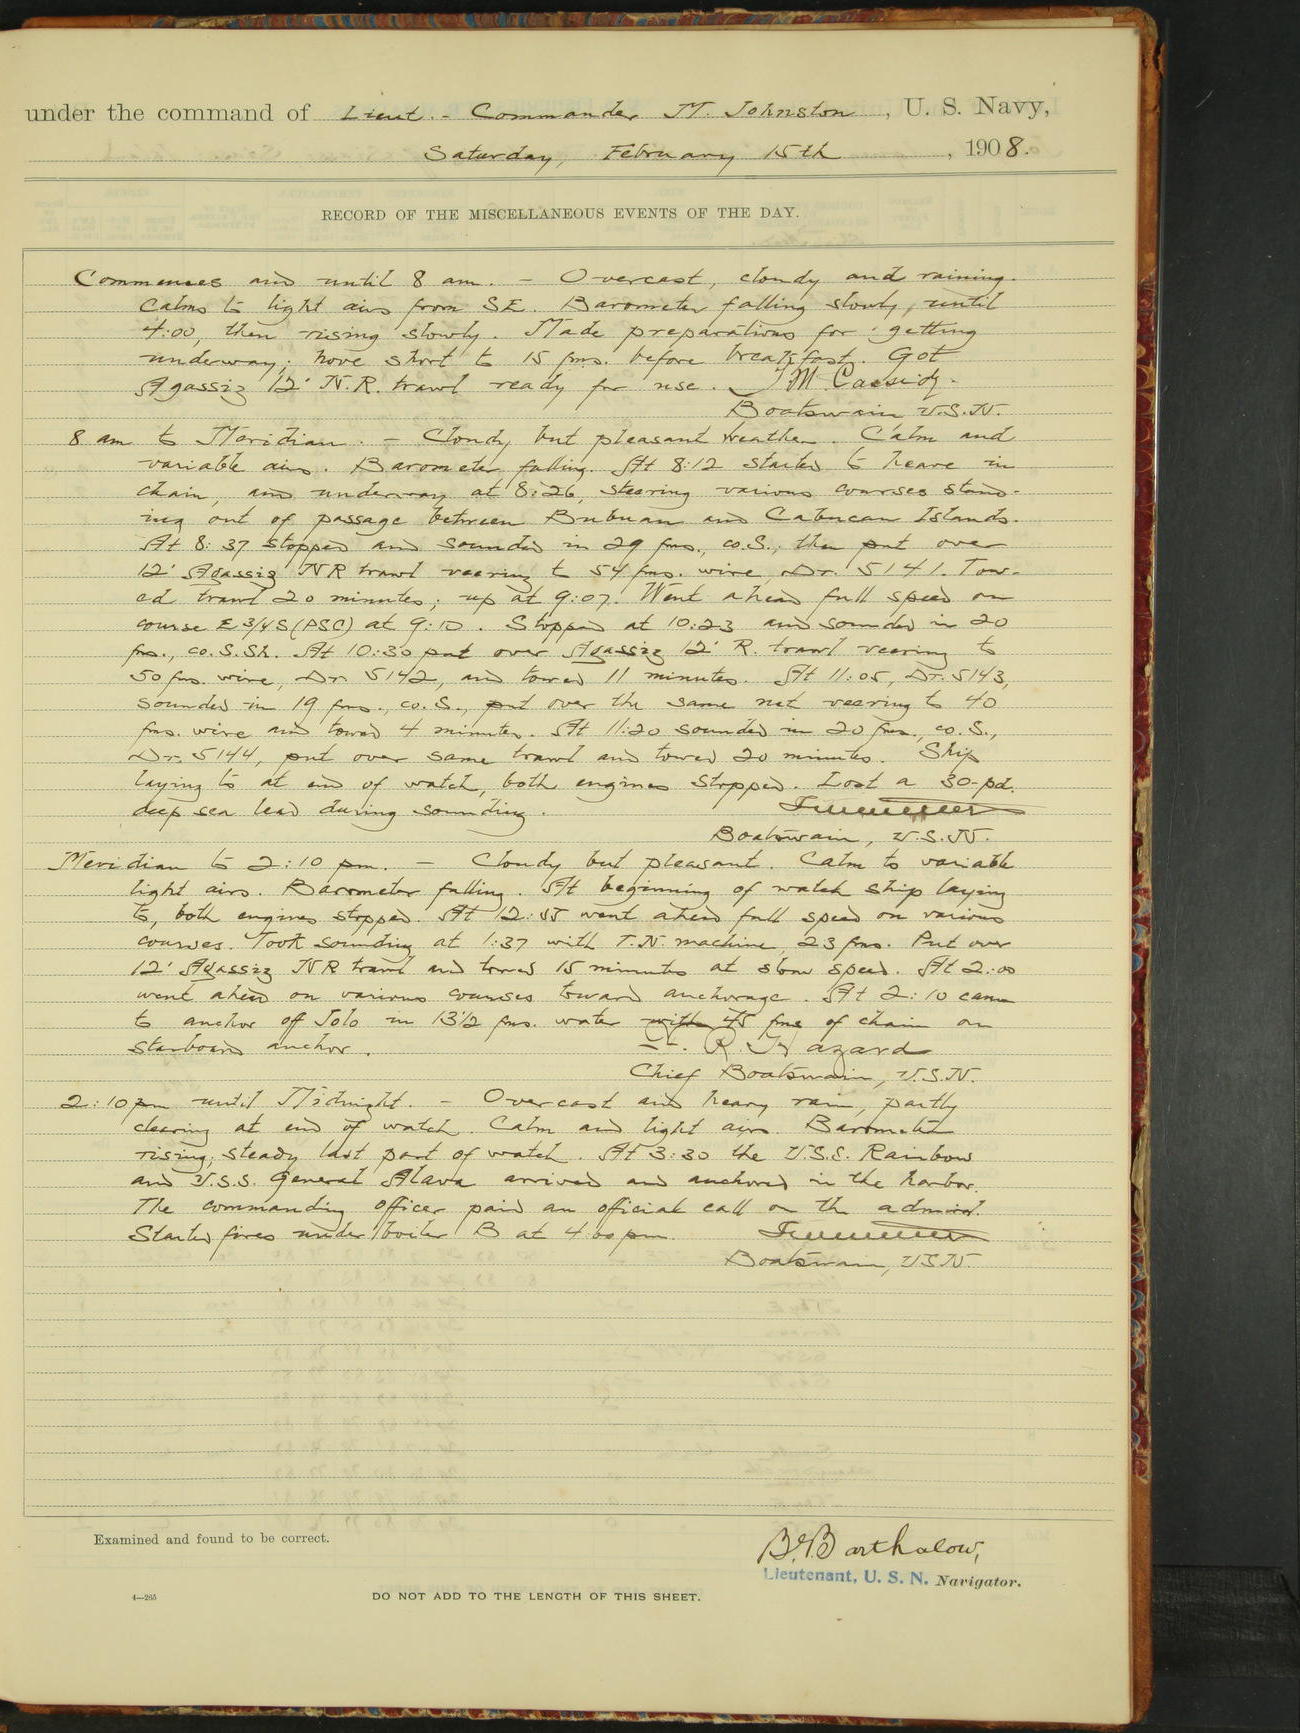 under the command of Lieut.-Commander M. Johnston, U. S. Navy,
Saturday, February 15th, 1908.
RECORD OF THE MISCELLANEOUS EVENTS OF THE DAY.
Commences and until 8 am. - Overcast, cloudy and raining.
Calms to light airs from SE. Barometer falling slowly, until
4:00, then rising slowly. Made preparations for getting
underway; hove short to 15 fms. before breakfast. Got
Agassiz 12' N.R. trawl ready for use. J M Cassidy.
Boatswain U.S.N.
8 am to Meridian. - Cloudy but pleasant weather. Calm and
variable airs. Barometer falling. At 8:12 started to heave in
chain, and underway at 8:26, steering various courses stand-
ing out of passage between Bubuan and Cabucan Islands.
At 8:37 stopped and sounded in 29 fms., co.S., then put over
12' Agassiz NR trawl veering to 54 fms. wire, Dr. 5141. Tow-
ed trawl 20 minutes; up at 9:07. Went ahead full speed on
course E 3/4 S (PSC) at 9:10. Stopped at 10:23 and sounded in 20
fms., co.S.Sh. At 10:30 put over Agassiz 12' R. trawl veering to
50 fms. wire, Dr. 5142, and towed 11 minutes. At 11:05, Dr. 5143,
sounded in 19 fms., co.S., put over the same net veering to 40
fms. wire and towed 4 minutes. At 11:20 sounded in 20 fms., co.S.,
Dr. 5144 put over same trawl and towed 20 minutes. Ship
laying to at end of watch, both engines stopped. Lost a 30-pd.
deep sea lead during sounding.
Boatswain, U.S.N.
Meridian to 2:10 pm. - Cloudy but pleasant. Calm to variable
light airs. Barometer falling. At beginning of watch ship laying
to, both engines stopped. At 12:55 went ahead full speed on various
courses. Took sounding at 1:37 with T.N. machine, 23 fms. Put over
12' Agassiz NR trawl and towed 15 minutes at slow speed. At 2:00
went ahead on various courses toward anchorage. At 2:10 came
to anchor off Jolo in 13 1/2 fms. water with 45 fms of chain on
starboard anchor. R. Hazard
Chief Boatswain, U.S.N.
2:10 pm until Midnight. - Overcast and heavy rain, partly
clearing at end of watch. Calm and light airs. Barometer
rising; steady last part of watch. At 3:30 the U.S.S. Rainbow
and U.S.S. General Alava arrived and anchored in the harbor.
The commanding officer paid an official call on the admiral.
Started fires under boiler B at 4:00 pm.
Boatswain, USN.
Examined and found to be correct.
B. B. Barthalow,
Lieutenant, U. S. N. Navigator.
4—265
DO NOT ADD TO THE LENGTH OF THIS SHEET.